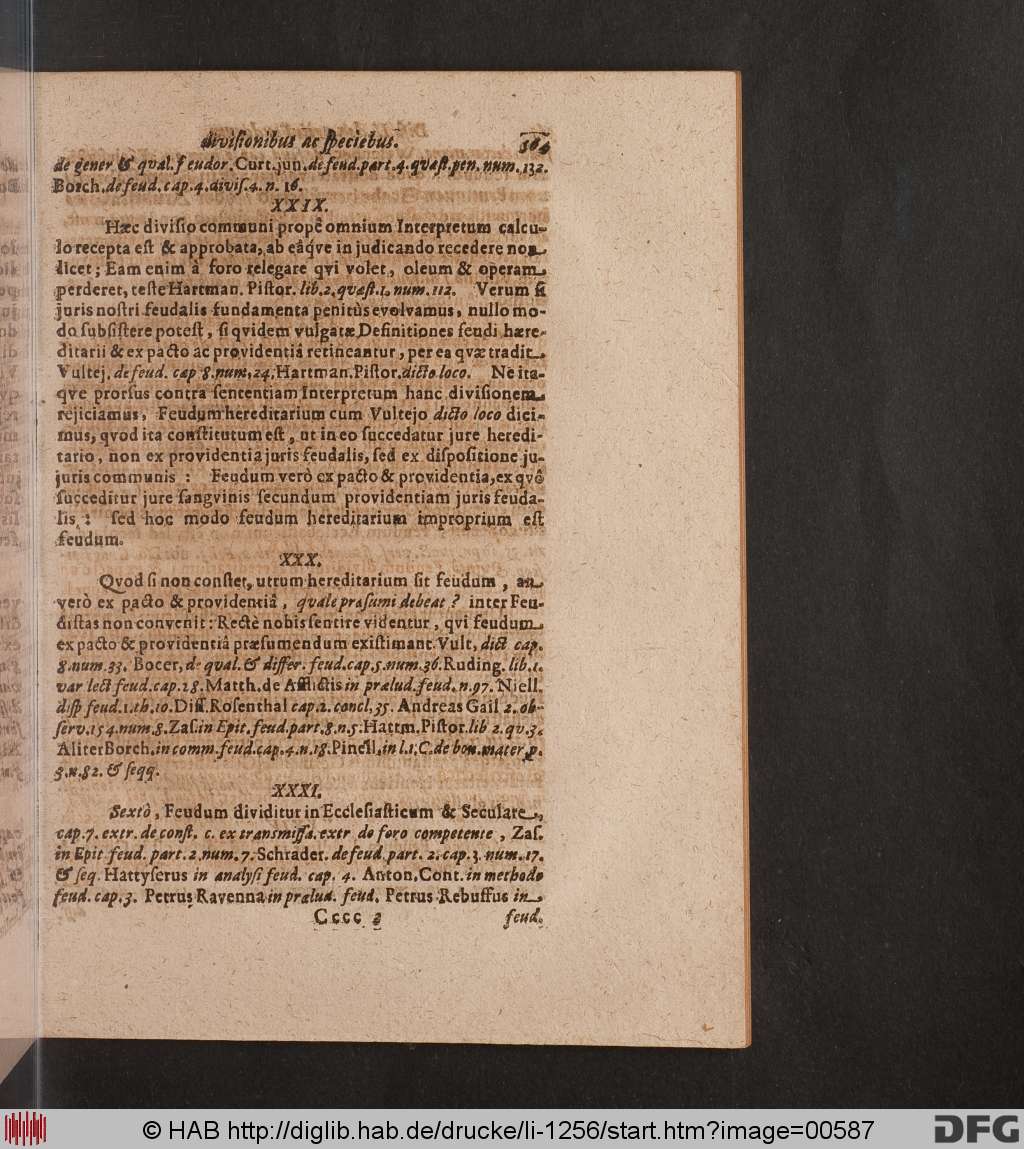 divisionibus ac speciebus.
de gener & qval. feudor. Curt. jun. de feud. part. 4. qvæst. pen. num. 132.
Borch. de feud. cap. 4. divis. 4. n. 16.
XXIX.
Hæc divisio communi propè omnium Interpretum calcu-
lo recepta est & approbata, ab eâqve in judicando recedere non
licet; Eam enim à foro relegare qvi volet, oleum & operam
perderet, teste Hartman. Pistor. lib. 2. qvæst. 1. num. 112. Verum si
juris nostri feudalis fundamenta penitùs evolvamus, nullo mo-
do subsistere potest, si qvidem vulgatæ Definitiones feudi hære-
ditarii & ex pacto ac providentiâ retineantur, per ea qvæ tradit
Vultej. de feud. cap 8. num, 24, Hartman. Pistor. dicto loco. Ne ita-
qve prorsus contra sententiam Interpretum hanc divisionem
rejiciamus, Feudum hereditarium cum Vultejo dicto loco dici-
mus, qvod ita constitutum est, ut in eo succedatur jure heredi-
tario, non ex providentia juris feudalis, sed ex dispositione ju-
juris communis : Feudum verò ex pacto & providentia, ex qvô
succeditur jure sangvinis secundum providentiam juris feuda-
lis : sed hoc modo feudum hereditarium improprium est
feudum.
XXX.
Qvod si non constet, utrum hereditarium sit feudum, an
verò ex pacto & providentiâ, quale præsumi debeat ? inter Feu-
distas non convenit: Rectè nobis sentire videntur, qvi feudum
ex pacto & providentiâ præsumendum existimant. Vult, dict cap.
8. num. 33. Bocer, de qval. & differ. feud. cap. 5. num. 36. Ruding. lib. 1.
var lect feud. cap. 18. Matth. de Afflictis in prælud. feud. n. 97. Niell.
disp feud. 1. th. 10. Diff. Rosenthal cap. 2. concl. 35. Andreas Gail 2. ob-
serv. 154. num. 8. Zas. in Epit. feud. part. 8. n. 5. Hartm. Pistor. lib 2. qv. 3.
Aliter Borch. in comm. feud. cap. 4. n. 18. Pinell. in l. 1. C. de bon. mater p.
3. n. 82. & seqq.
XXXI.
Sextò, Feudum dividitur in Ecclesiasticum & Seculare,
cap. 7. extr. de const. c. ex transmissa. extr de foro competente, Zas.
in Epit feud. part. 2. num. 7. Schrader. de feud. part. 2. cap. 3. num. 17.
& seq. Hattyserus in analysi feud. cap. 4. Anton. Cont. in methodo
feud. cap. 3. Petrus Ravenna in prælud. feud. Petrus Rebuffus in
Cccc 2 feud.
© HAB http://diglib.hab.de/drucke/li-1256/start.htm?image=00587
DFG